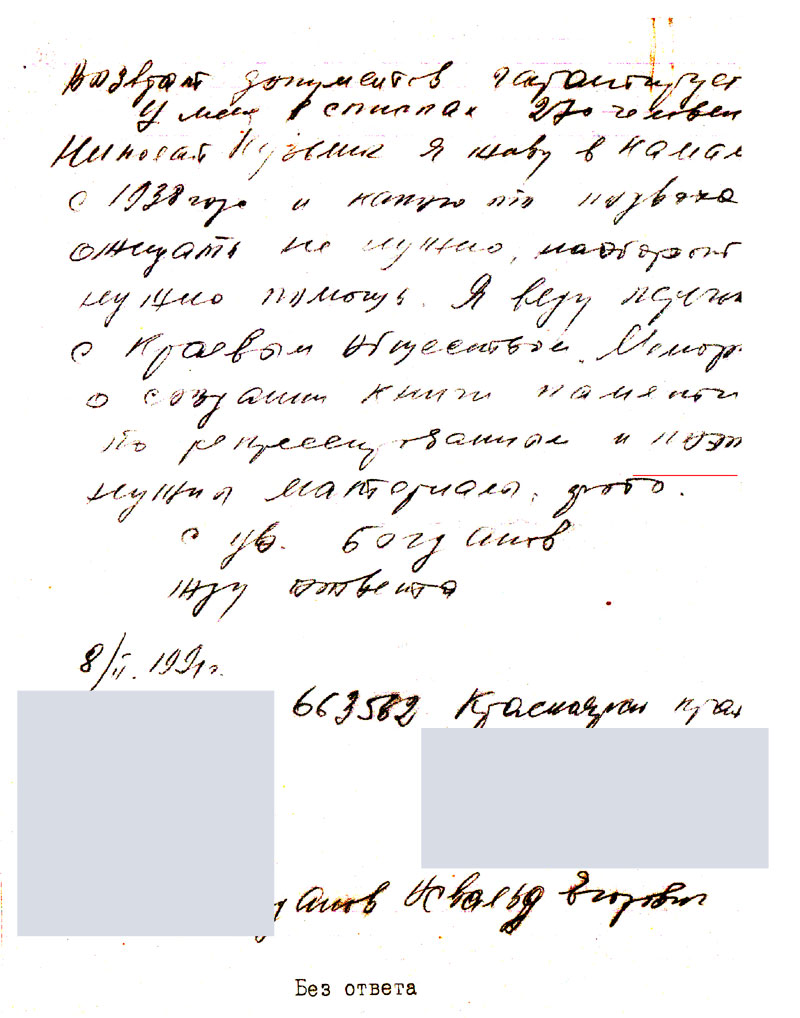 Возврат документов гарантирует
У меня в списках 270 человек
Николай Кузьмич Я живу в
с 1938 года и какую то подвоха
ожидать не нужно, наоборот
нужно помощь. Я веду
с Краевым обществом „Мемор
о создании книги памяти
по репрессированным и поэт
нужны материалы, фото.
с ув. Богданов
жду ответа
8/II. 1991г.
663582 Красноярск край
данов Освальд Егорович
Без ответа